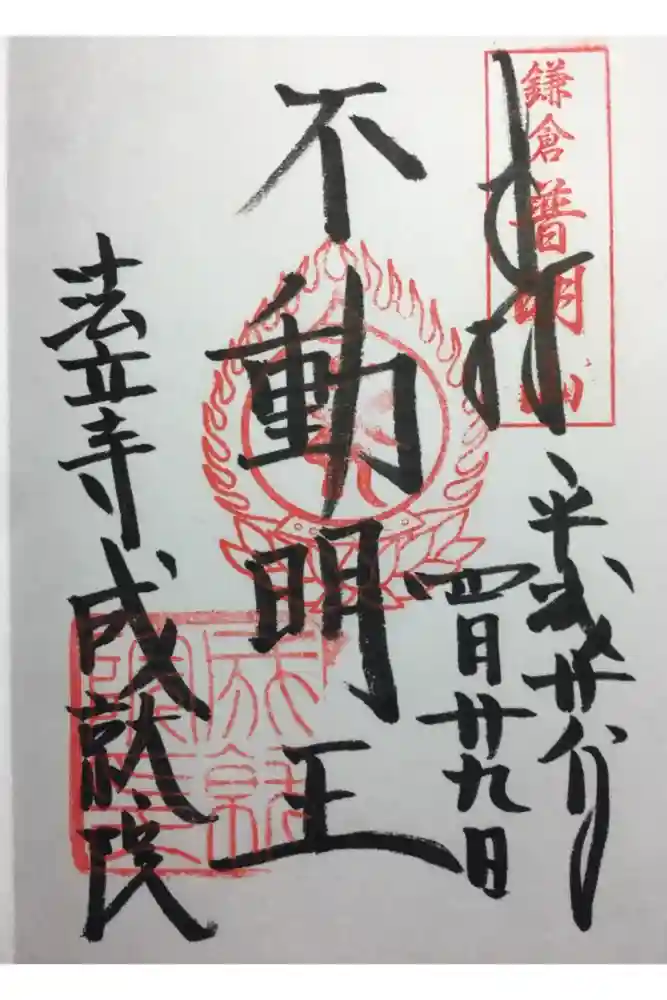 奉拝
鎌倉普明山
平成廿八年
四月廿九日
不動明王
法立寺成就院
成就